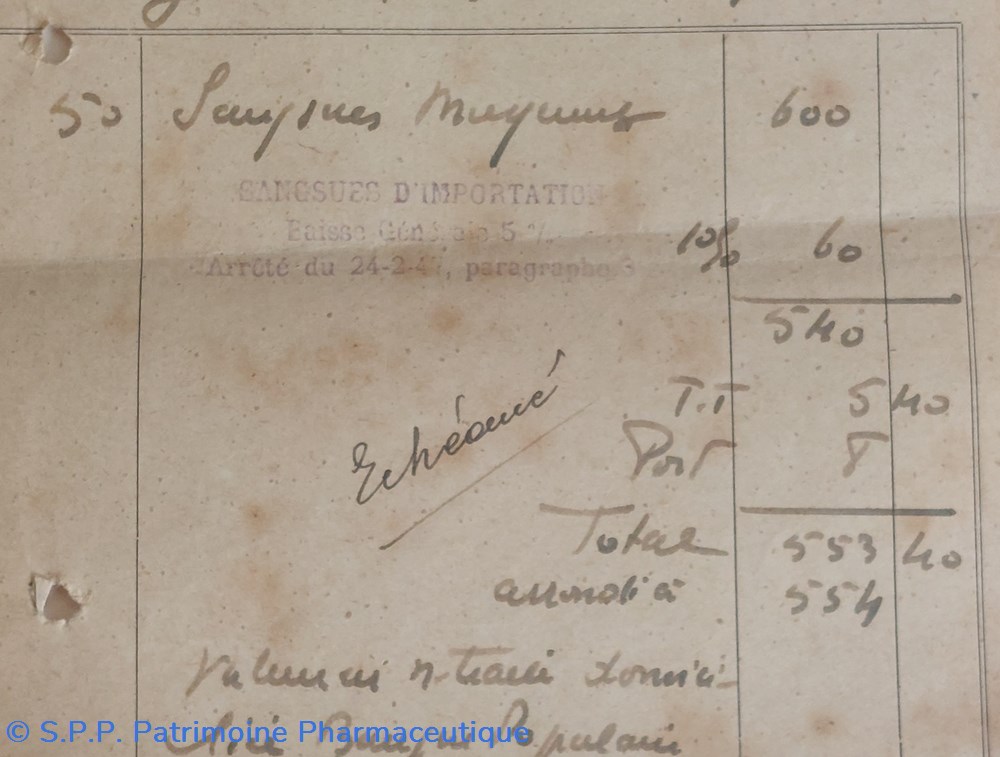 50 Sangsues Moyennes 600
SANGSUES D'IMPORTATION
Baisse Générale 5 %
10% 60
Arrêté du 24-2-4 , paragraphe 3
540
T.T 5 40
Port 8
Echéance
Total 553 40
arrondi à 554
Valeur en n-traite domici-
liée Banque Populaire
© S.P.P. Patrimoine Pharmaceutique